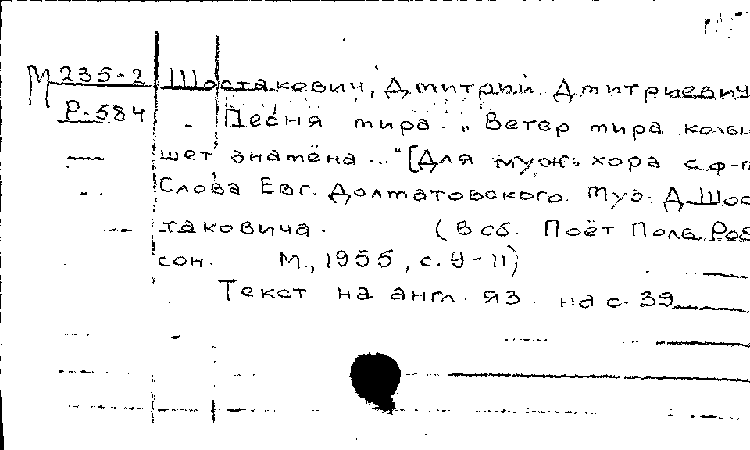 М 235-2 Шостакович, Дмитрий Дмитриевич
Р-584 Песня мира. "Ветер мира колы-
шет знамёна..." [Для муж. хора с ф-п
Слова Евг. Долматовского. Муз. Д. Шос-
таковича. (В сб. Поёт Поль Роб
сон. М., 1955, с. 9-11)
Текст на англ. яз. на с. 39